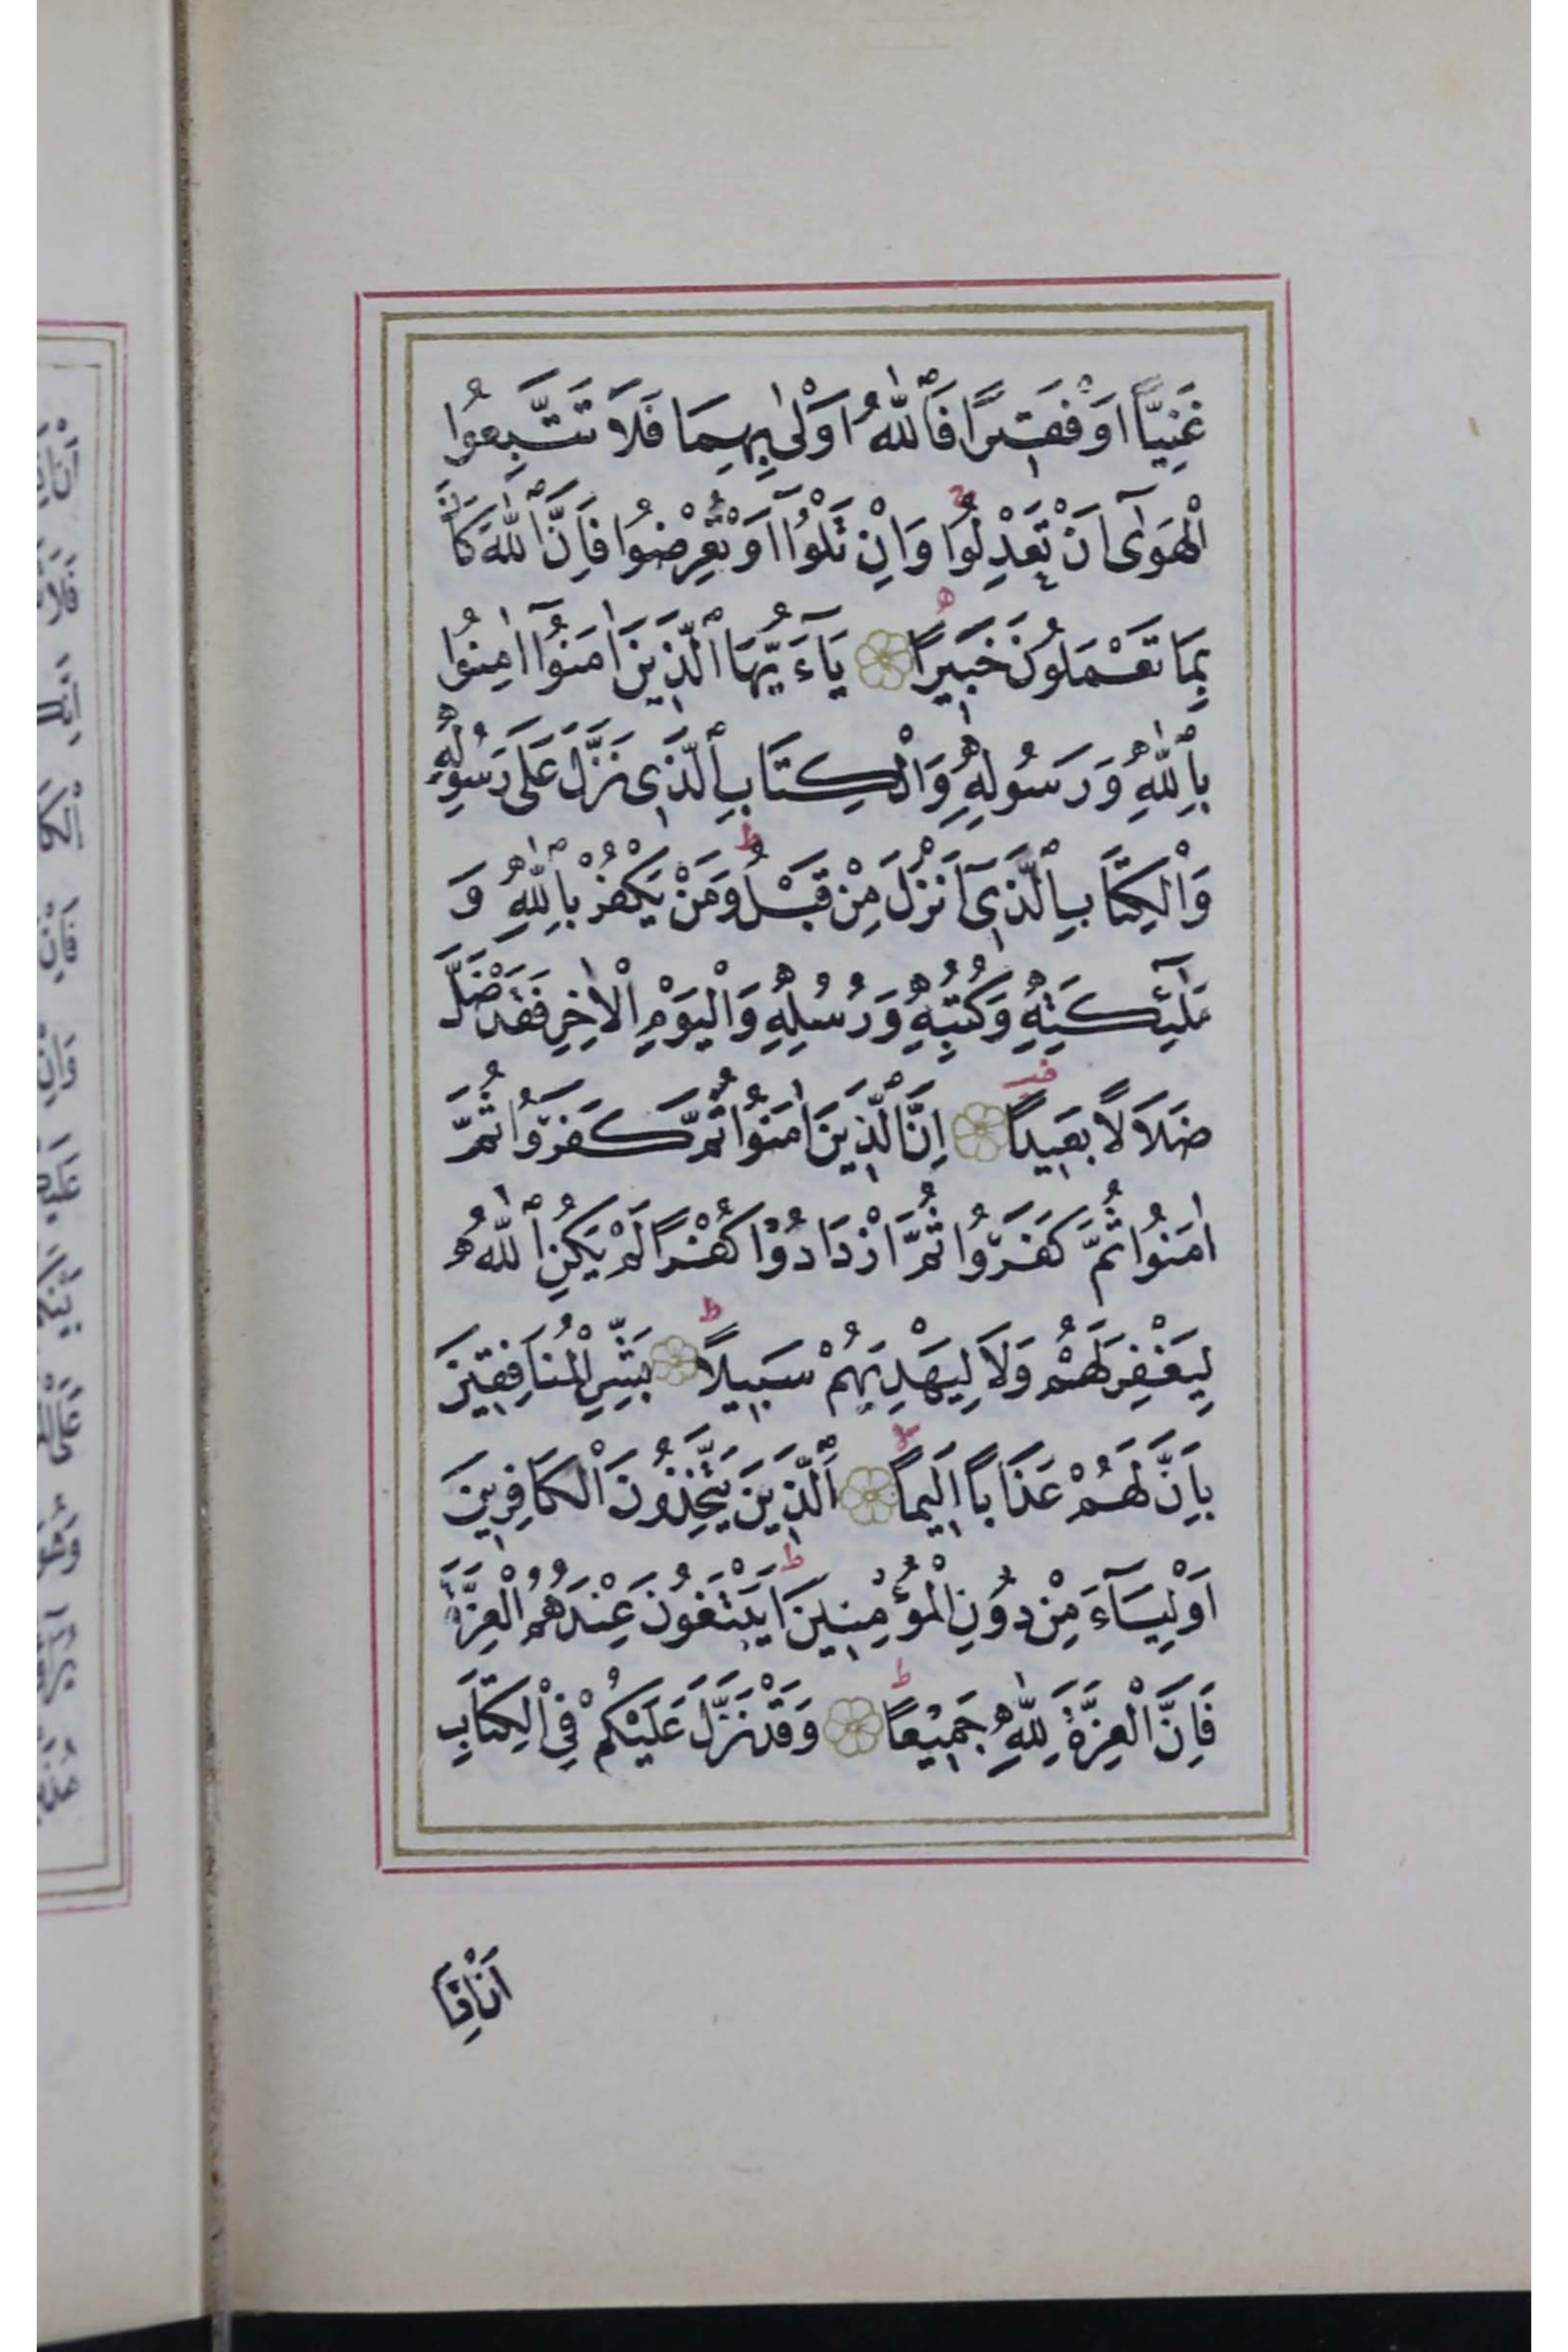 غَنِيًّا اَوْ فَقيرًا فَاللّٰهُ اَوْلٰى بِهِمَا فَلَا تَتَّبِعُوا
الْهَوٰٓى اَنْ تَعْدِلُوا وَاِنْ تَلْوُٓا اَوْ تُعْرِضُوا فَاِنَّ اللّٰهَ كَانَ
بِمَا تَعْمَلُونَ خَبيرًا يَآءَيُّهَا الَّذينَ اٰمَنُوٓا اٰمِنُوا
بِاللّٰهِ وَرَسُولِهِ وَالْكِتَابِ الَّذى نَزَّلَ عَلَى رَسُولِهِ
وَالْكِتَابِ الَّذىٓ اَنْزَلَ مِنْ قَبْلُ وَمَنْ يَكْفُرْ بِاللّٰهِ وَ
مَلٰٓئِكَتِهِ وَكُتُبِهِ وَرُسُلِهِ وَالْيَوْمِ الْاٰخِرِ فَقَدْ ضَلَّ
ضَلَالًا بَعيدًا اِنَّ الَّذينَ اٰمَنُوا ثُمَّ كَفَرُوا ثُمَّ
اٰمَنُوا ثُمَّ كَفَرُوا ثُمَّ ازْدَادُوا كُفْرًا لَمْ يَكُنِ اللّٰهُ
لِيَغْفِرَ لَهُمْ وَلَا لِيَهْدِيَهُمْ سَبيلًا بَشِّرِ الْمُنَافِقينَ
بِاَنَّ لَهُمْ عَذَابًا اَليمًا اَلَّذينَ يَتَّخِذُونَ الْكَافِرينَ
اَوْلِيَآءَ مِنْ دُونِ الْمُؤْمِنينَ اَيَبْتَغُونَ عِنْدَهُمُ الْعِزَّةَ
فَاِنَّ الْعِزَّةَ لِلّٰهِ جَميعًا وَقَدْ نَزَّلَ عَلَيْكُمْ فِى الْكِتَابِ